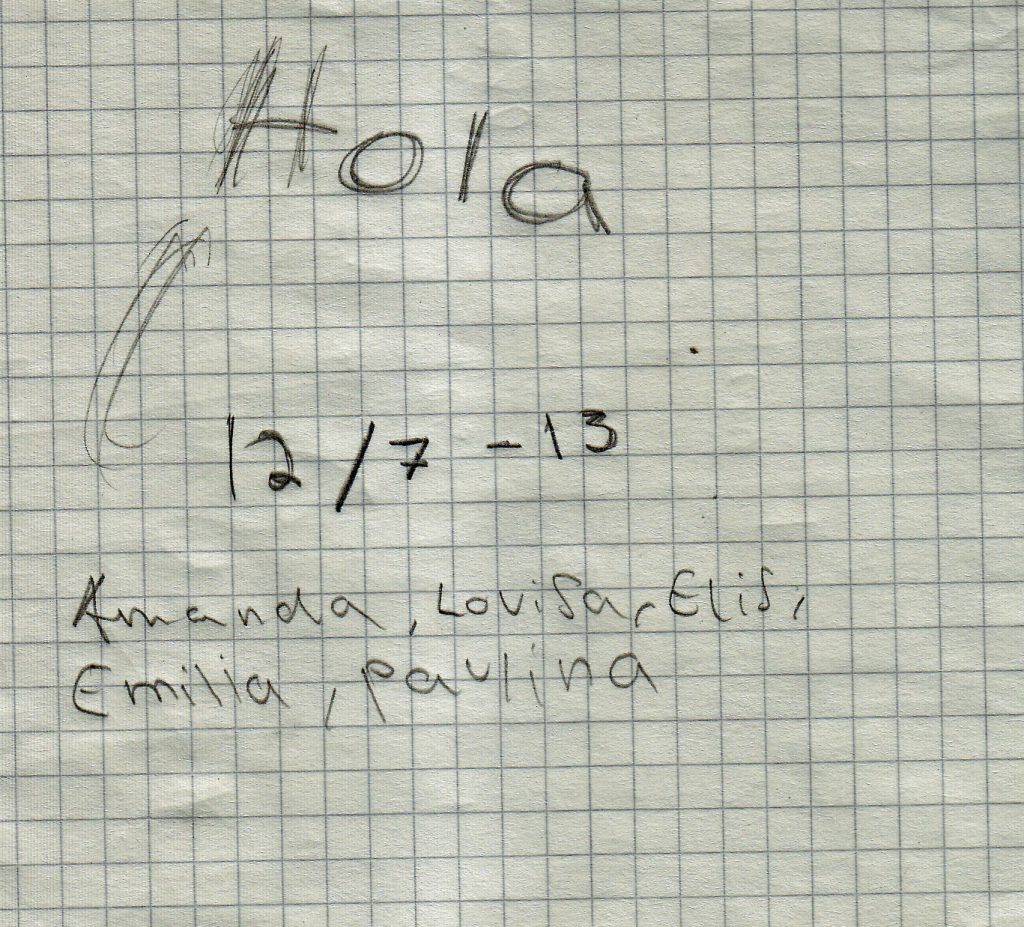 Hola
12/7 -13
Amanda, Lovisa, Elis,
Emilia, paulina